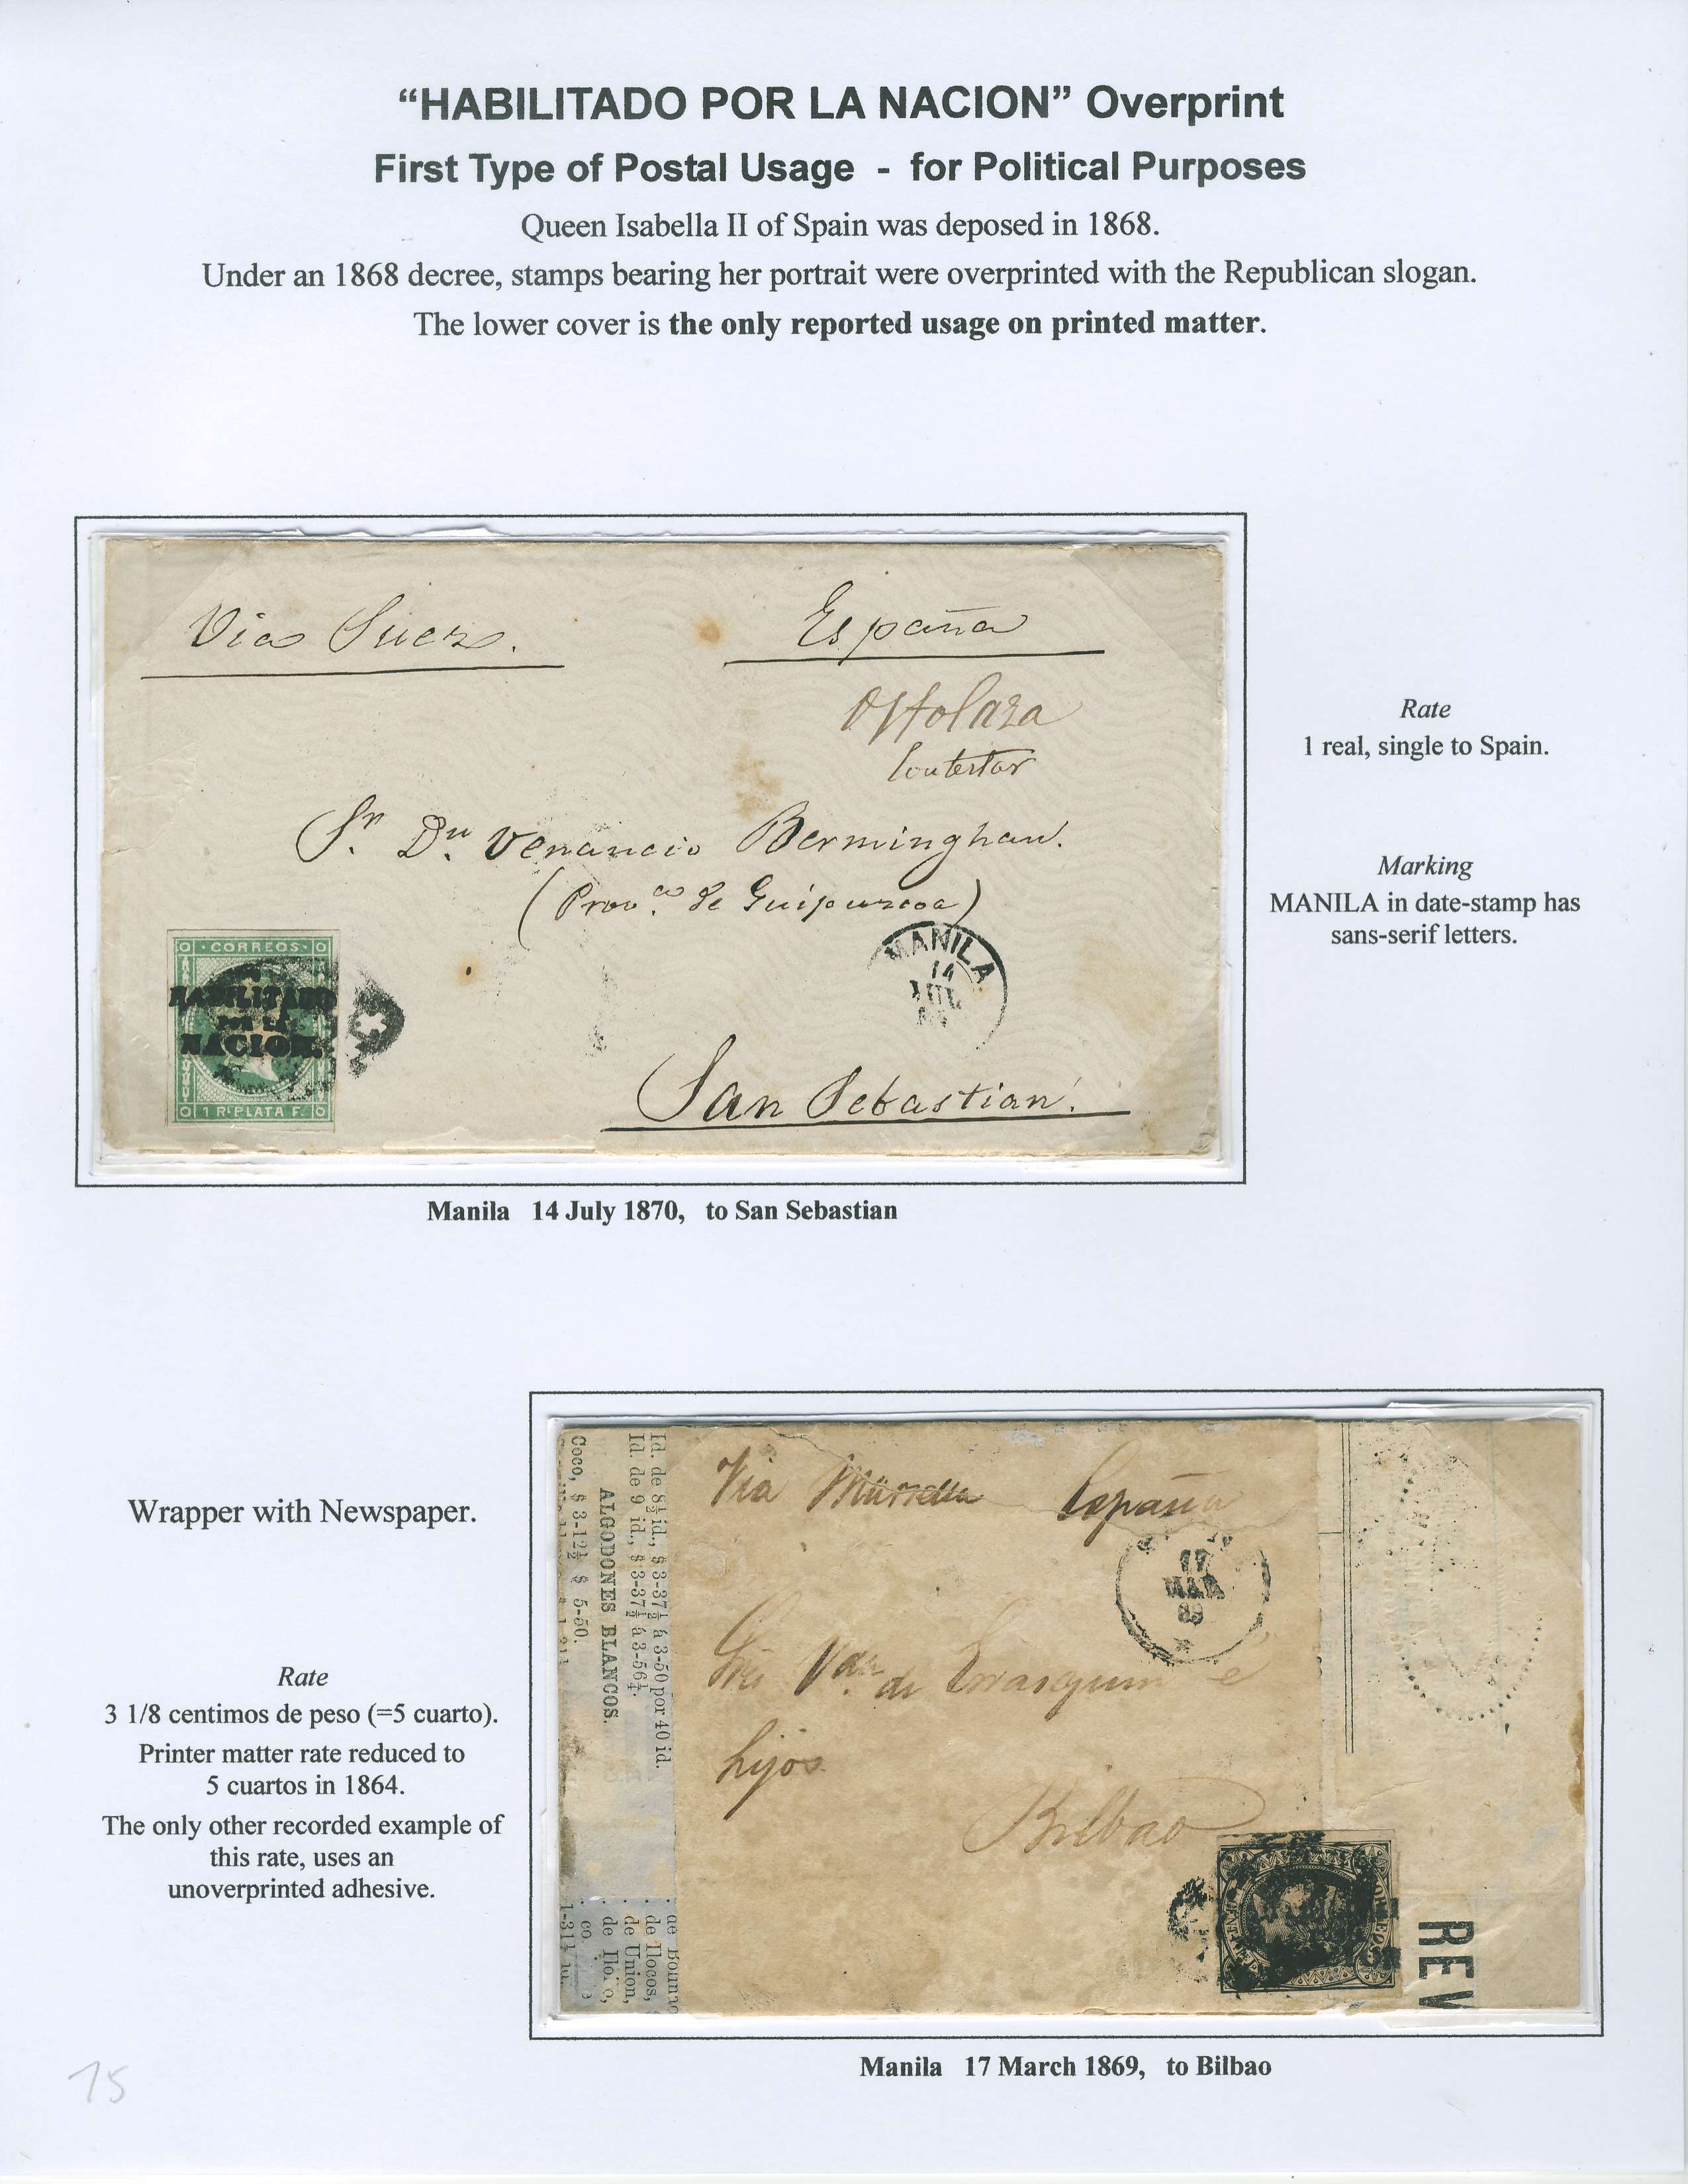 “HABILITADO POR LA NACION” Overprint
First Type of Postal Usage - for Political Purposes
Queen Isabella II of Spain was deposed in 1868.
Under an 1868 decree, stamps bearing her portrait were overprinted with the Republican slogan.
The lower cover is the only reported usage on printed matter.
Via Suez.
España
Contestar
Sr. Dn. Venancio Bermingham.
(Prov.a de Guipuzcoa)
CORREOS
HABILITADO
POR LA
NACION.
1 RL PLATA F.
MANILA
14
JUL
San Sebastian.
Rate
1 real, single to Spain.
Marking
MANILA in date-stamp has
sans-serif letters.
Manila 14 July 1870, to San Sebastian
Wrapper with Newspaper.
Rate
3 1/8 centimos de peso (=5 cuarto).
Printer matter rate reduced to
5 cuartos in 1864.
The only other recorded example of
this rate, uses an
unoverprinted adhesive.
Id. de 8½ id., $ 3-37½ á 3-50 por 40 id.
Id. de 9 id., $ 3-37½ á 3-56¼.
ALGODONES BLANCOS.
Coco, $ 3-12½ $ 5-50.
de Ilocos,
de Union,
de Iloilo,
Via España
17
MAR
69
Vda. de
hijos
Bilbao
REV
Manila 17 March 1869, to Bilbao
15